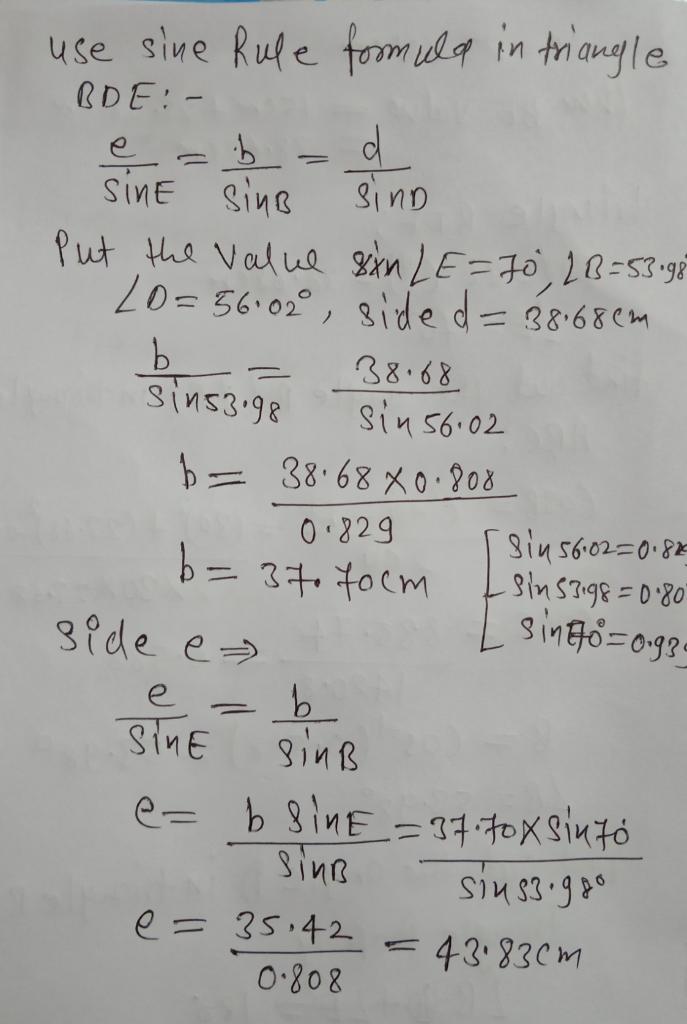 use sine Rule formula in triangle
BDE: -
e/SinE = b/SinB = d/SinD
Put the Value sin ∠E = 70°, ∠B = 53.98
∠D = 56.02°, side d = 38.68cm
b/Sin53.98 = 38.68/Sin 56.02
b = 38.68 X 0.808/0.829
b = 37.70cm
[Sin 56.02 = 0.82
Sin 53.98 = 0.80
Sin 70° = 0.93
Side e ⇒
e/SinE = b/SinB
e = b SinE/SinB = 37.70 X Sin 70°/Sin 53.98°
e = 35.42/0.808 = 43.83cm